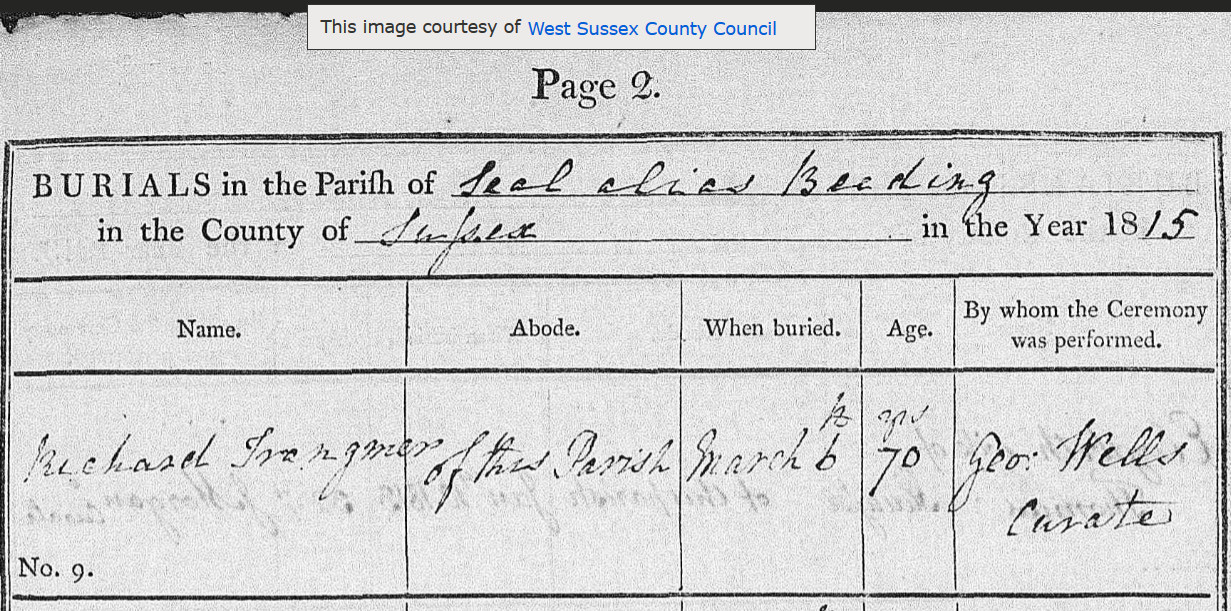 This image courtesy of West Sussex County Council
Page 2.
BURIALS in the Pariſh of Seal alias Beeding
in the County of Suſsex in the Year 1815
Name. Abode. When buried. Age. By whom the Ceremony was performed.
Richard Trangmer of this Parish March 6th 70 yrs Geo: Wells Curate
No. 9.